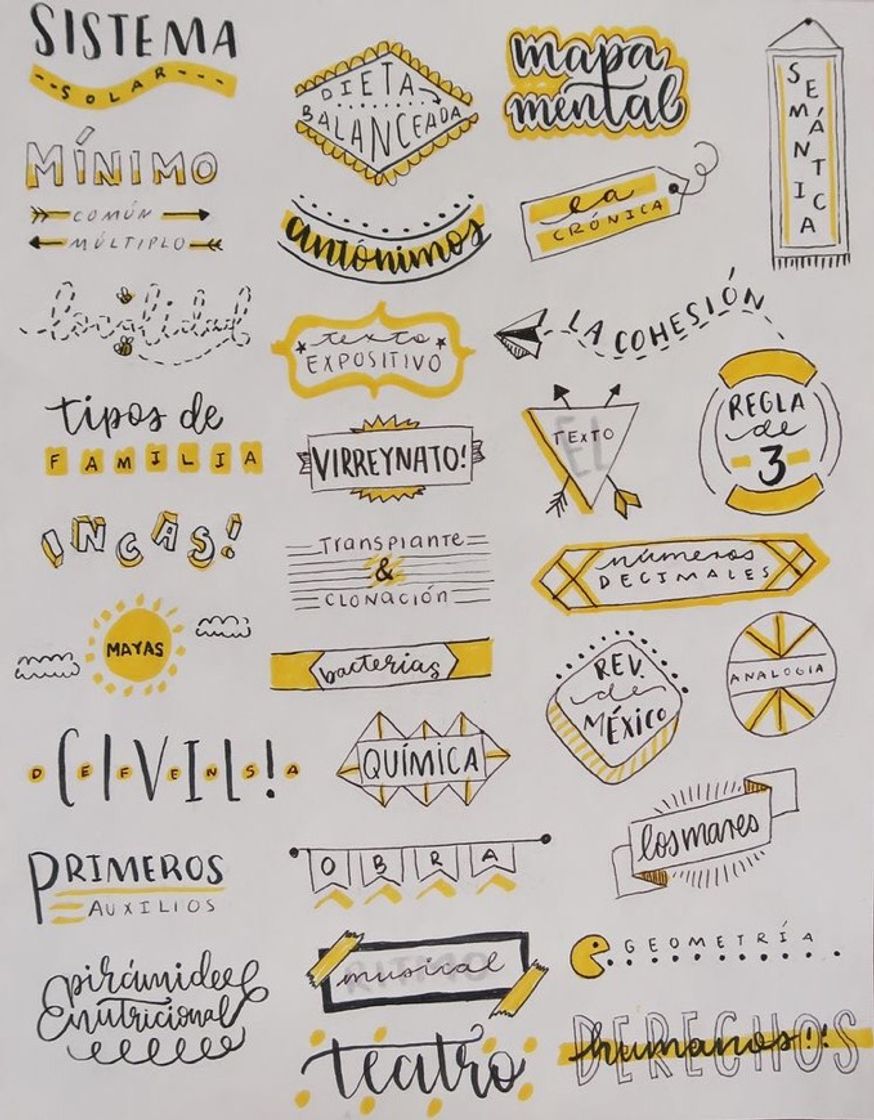 SISTEMA
SOLAR
MÍNIMO
COMÚN
MÚLTIPLO
tipos de
FAMILIA
INCAS!
MAYAS
DEFENSA CIVIL!
PRIMEROS
AUXILIOS
pirámide
nutricional
DIETA
BALANCEADA
antónimos
texto
EXPOSITIVO
VIRREYNATO!
Transplante
&
CLONACIÓN
bacterias
QUÍMICA
OBRA
RITMO
musical
teatro
mapa
mental
la
CRÓNICA
SEMÁNTICA
LA COHESIÓN
EL
TEXTO
REGLA
de
3
números
DECIMALES
REV.
de
MÉXICO
ANALOGIA
los mares
GEOMETRÍA
DERECHOS
humanos!!